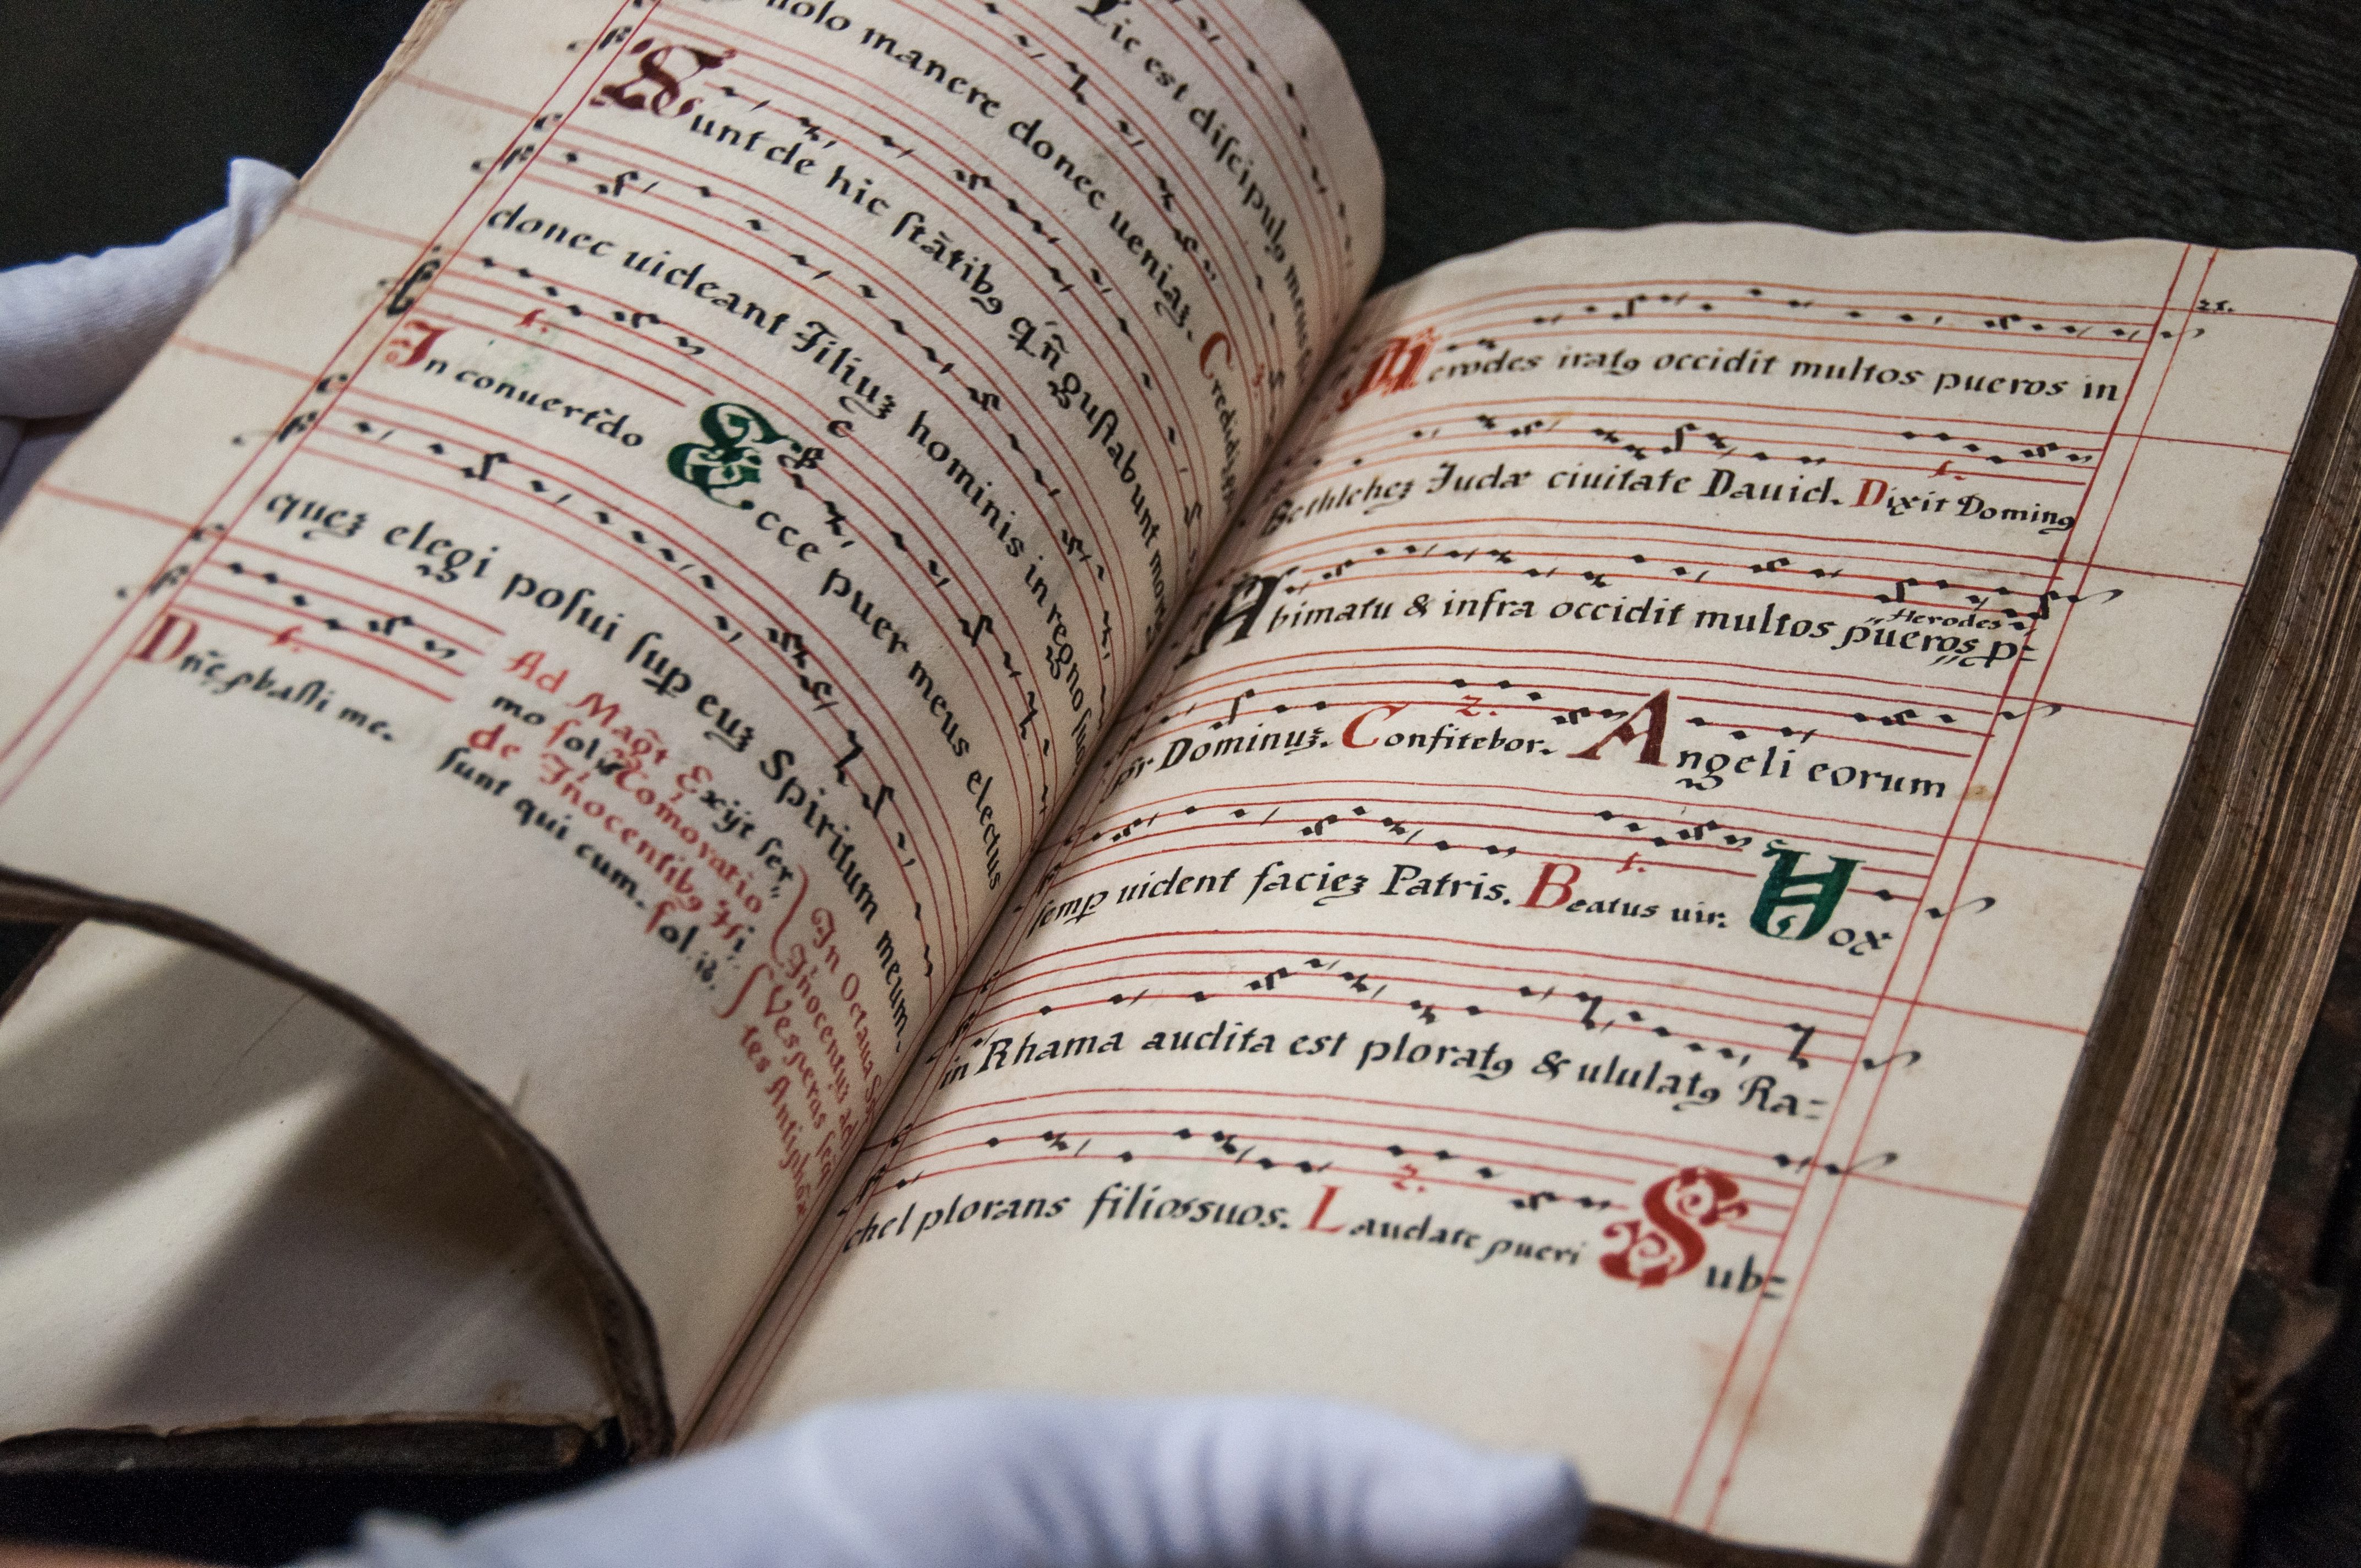 ic est diſcipulꝯ meus
nolo manere donec ueniaꝫ. Credidi.
Sunt de hic ſtãtibꝯ qñ guſtabunt mor
donec uideant Filiuꝫ hominis in regno ſuo
1.
In conuert̃do Ecce puer meus electus
queꝫ elegi poſui ſuꝑ euꝫ Spiritum meum.
1.
Dñe ꝓbaſti me.
Ad Mag̃t Exijt ſer
mo fol
de Iñocentibꝯ Hi
ſunt qui cum. fol. ib.
In Octaua
Iñocentiũ ad
Veſperas
tes Antiphõa
25.
Herodes iratꝯ occidit multos pueros in
Bethleheꝫ Judæ ciuitate Dauid. Dixit Dominꝯ
1.
A bimatu & infra occidit multos pueros ꝑ=
Herodes
Dominuꝫ. Confitebor. Angeli eorum
2.
ſemꝑ uident facieꝫ Patris. Beatus uir. Vox
1.
in Rhama audita est ploratꝯ & ululatꝯ Ra=
chel plorans filios suos. Laudate pueri Sub=
2.